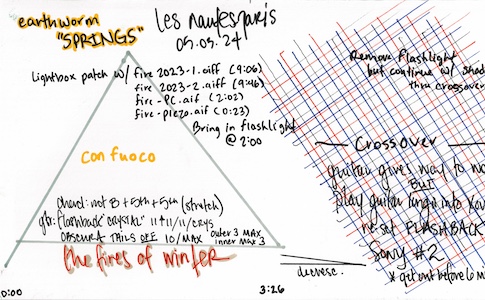 earthworm
"SPRINGS"
les naufesparis
05.05.24
Lightbox patch w/ fire 2023-1.aiff (9:06)
fire 2023-2.aiff (9:46)
fire-PC.aif (2:02)
fire-piezo.aif (0:23)
Bring in flashlight
@ 2:00
con fuoco
chord: not B + 5th + 5th (stretch)
gtr: flashback "CRYSTAL" 11+11/11/CRYS
OBSCURA TAILS OFF 10/MAX outer 3 MAX
inner max 3
the fires of winter
0:00
3:26
decresc.
Remove flashlight
but continue w/
thru crossover
Crossover
guitar gives way to
BUT
play guitar
re-set FLASHBACK
Song #2
* get out before 6